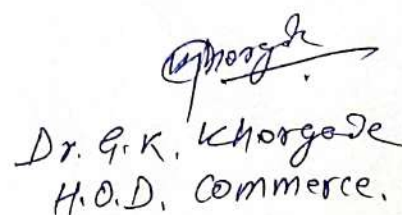 Dr. G.K. Khorgade
H.O.D. Commerce.